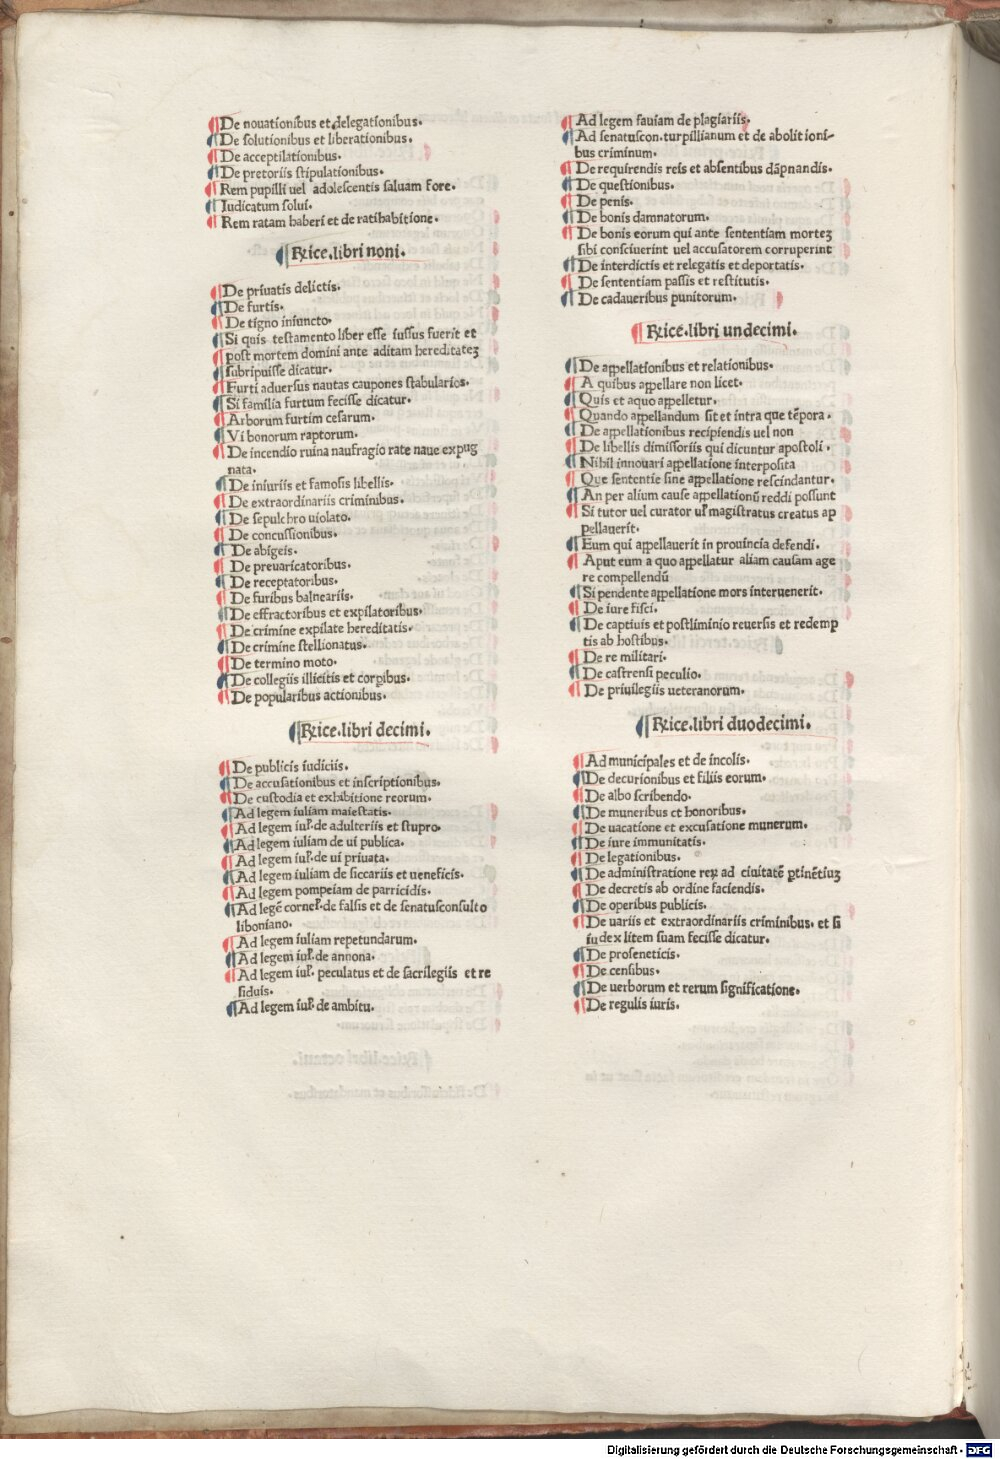 De nouationibus et delegationibus.
De solutionibus et liberationibus.
De acceptilationibus.
De pretoriis stipulationibus.
Rem pupilli uel adolescentis saluam fore.
Iudicatum solui.
Rem ratam haberi et de ratihabitione.
Rꝛice.libri noni.
De priuatis delictis.
De furtis.
De tigno iniuncto.
Si quis testamento liber esse iussus fuerit et
post mortem domini ante aditam hereditateꝫ
subripuisse dicatur.
Furti aduersus nautas caupones stabularios.
Si familia furtum fecisse dicatur.
Arborum furtim cesarum.
Vi bonorum raptorum.
De incendio ruina naufragio rate naue expug
nata.
De iniuriis et famosis libellis.
De extraordinariis criminibus.
De sepulchro uiolato.
De concussionibus.
De abigeis.
De preuaricatoribus.
De receptatoribus.
De furibus balneariis.
De effractoribus et expilatoribus.
De crimine expilate hereditatis.
De crimine stellionatus.
De termino moto.
De collegiis illicitis et corꝑibus.
De popularibus actionibus.
Rꝛice.libri decimi.
De publicis iudiciis.
De accusationibus et inscriptionibus.
De custodia et exhibitione reorum.
Ad legem iuliam maiestatis.
Ad legem iul̕.de adulteriis et stupro.
Ad legem iuliam de ui publica.
Ad legem iul̕.de ui priuata.
Ad legem iuliam de siccariis et ueneficis.
Ad legem pompeiam de parricidis.
Ad legē cornel̕.de falsis et de senatusconsulto
liboniano.
Ad legem iuliam repetundarum.
Ad legem iul̕.de annona.
Ad legem iul̕. peculatus et de sacrilegiis et re
siduis.
Ad legem iul̕.de ambitu.
Ad legem fauiam de plagiariis.
Ad senatuscon.turpillianum et de abolitioni-
bus criminum.
De requirendis reis et absentibus dāpnandis.
De questionibus.
De penis.
De bonis damnatorum.
De bonis eorum qui ante sententiam morteꝫ
sibi consciuerint uel accusatorem corruperint
De interdictis et relegatis et deportatis.
De sententiam passis et restitutis.
De cadaueribus punitorum.
Rꝛice.libri undecimi.
De appellationibus et relationibus.
A quibus appellare non licet.
Quis et aquo appelletur.
Quando appellandum sit et intra que tēpora.
De appellationibus recipiendis uel non
De libellis dimissoriis qui dicuntur apostoli.
Nihil innouari appellatione interposita
Que sententie sine appellatione rescindantur.
An per alium cause appellationū reddi possunt
Si tutor uel curator ul̕ magistratus creatus ap
pellauerit.
Eum qui appellauerit in prouincia defendi.
Aput eum a quo appellatur aliam causam age
re compellendū
Si pendente appellatione mors interuenerit.
De iure fisci.
De captiuis et postliminio reuersis et redemp
tis ab hostibus.
De re militari.
De castrensi peculio.
De priuilegiis ueteranorum.
Rꝛice.libri duodecimi.
Ad municipales et de incolis.
De decurionibus et filiis eorum.
De albo scribendo.
De muneribus et honoribus.
De uacatione et excusatione munerum.
De iure immunitatis.
De legationibus.
De administratione reꝝ ad ciuitatē ꝑtinētiuꝫ
De decretis ab ordine faciendis.
De operibus publicis.
De uariis et extraordinariis criminibus. et si
iudex litem suam fecisse dicatur.
De proseneticis.
De censibus.
De uerborum et rerum significatione.
De regulis iuris.
Digitalisierung gefördert durch die Deutsche Forschungsgemeinschaft - DFG